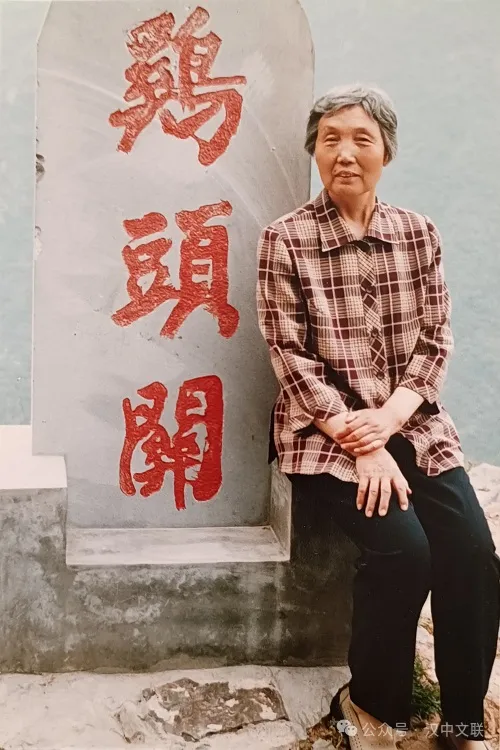 鷄頭關
公众号 · 汉中文联